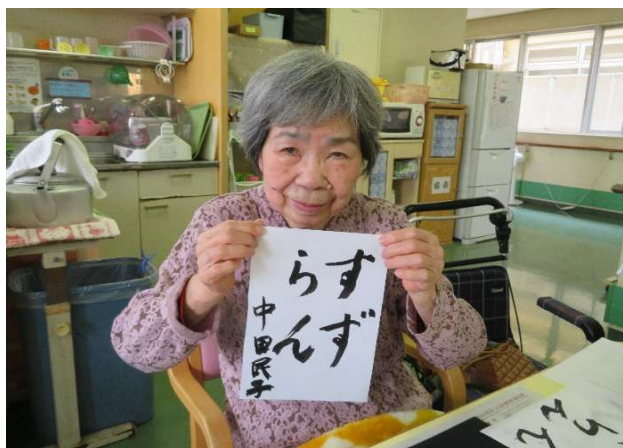 すず
らん
中田民子